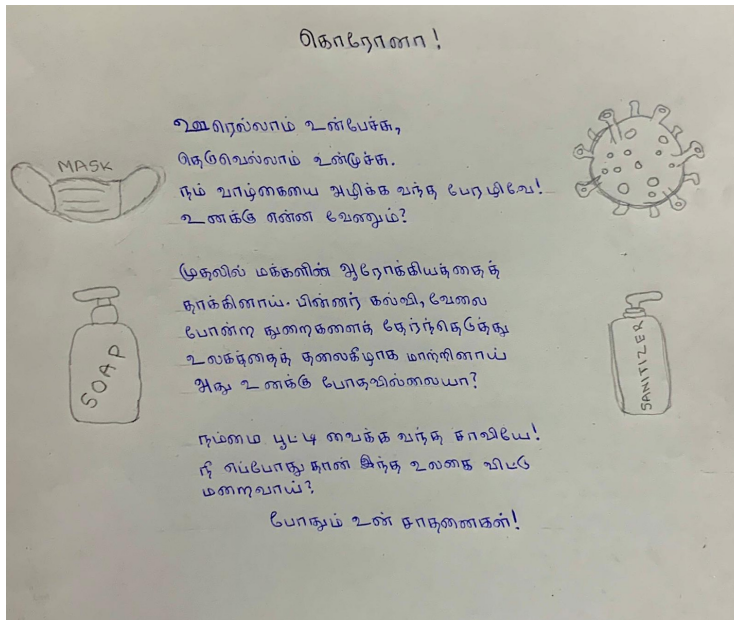 கொரோனா!
ஊரெல்லாம் உன்பேச்சு,
தெருவெல்லாம் உன்மூச்சு.
MASK
நம் வாழ்கையை அழிக்க வந்த பேரழிவே!
உனக்கு என்ன வேணும்?
முதலில் மக்களின் ஆரோக்கியத்தைத்
தாக்கினாய். பின்னர் கல்வி, வேலை
போன்ற துறைகளைத் தேர்ந்தெடுத்து
உலகத்தைத் தலைகீழாக மாற்றினாய்
அது உனக்கு போதவில்லையா?
SOAP
SANITIZER
நம்மை பூட்டி வைக்க வந்த சாவியே!
நீ எப்போது தான் இந்த உலகை விட்டு
மறைவாய்?
போதும் உன் சாதனைகள்!